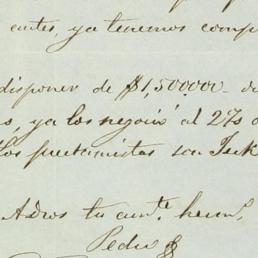 antes, ya tenemos comp
disponer de $1,500.000
s, ya los negocié al 2% 
los prestamistas son
Adios tu aunte. herm.
Pedro